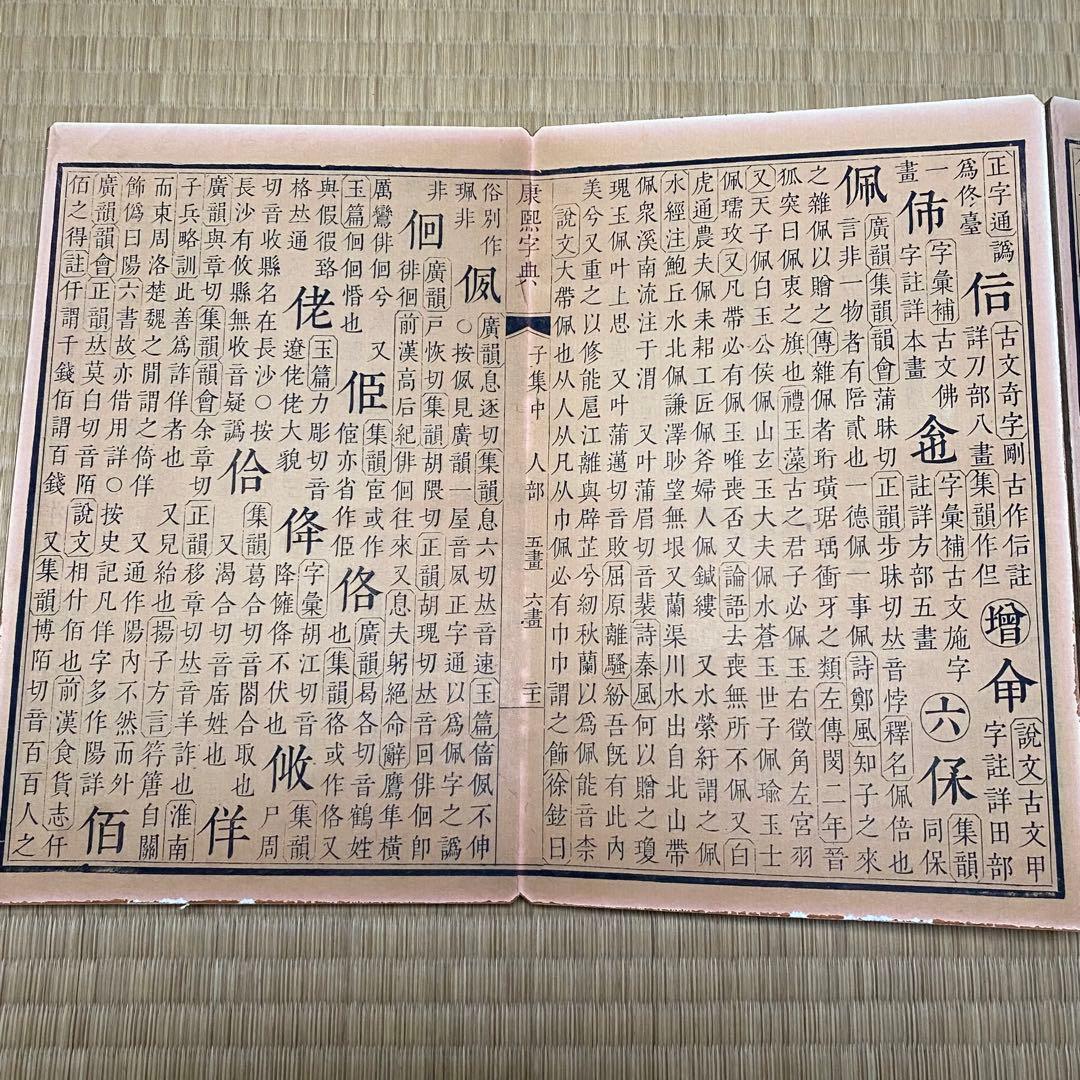 正字通譌
為佟臺
古文奇字剛古作㐰註
詳刀部八畫集韻作但
增
說文古文甲
字註詳田部
一
畫
字彙補古文佛
字註詳本畫
字彙補古文施字
註詳方部五畫
六
集韻
同保
佩
廣韻集韻韻會蒲昧切正韻步昧切𠀤音悖釋名佩倍也
言非一物者有陪貳也一德佩一事佩詩鄭風知子之來
之雜佩以贈之傳雜佩者珩璜琚瑀衝牙之類左傳閔二年晉
狐突曰佩衷之旗也禮玉藻古之君子必佩玉右徵角左宮羽
又天子佩白玉公侯佩山玄玉大夫佩水蒼玉世子佩瑜玉士
佩瓀玫又凡帶必有佩玉唯喪否又論語去喪無所不佩又白
虎通農夫佩耒耜工匠佩斧婦人佩鍼縷 又水縈紆謂之佩
水經注鮑丘水北佩謙澤眇望無垠又蘭渠川水出自北山帶
佩衆溪南流注于渭 又叶蒲眉切音裴詩秦風何以贈之瓊
瑰玉佩叶上思 又叶蒲邁切音敗屈原離騷紛吾旣有此內
美兮又重之以修能扈江離與辟芷兮紉秋蘭以為佩能音柰
說文大帶佩也从人从凡从巾佩必有巾巾謂之飾徐鉉曰
康熙字典 子集中 人部 五畫 六畫
俗別作
珮非
㑉
廣韻息逐切集韻息六切𠀤音速玉篇㑉不伸
○按㑉見廣韻一屋音夙正字通以為佩字之譌
非
佪
廣韻戸恢切集韻胡隈切正韻胡瑰切𠀤音回俳佪卽
徘徊前漢高后紀俳佪往來又息夫躬絕命辭鷹隼橫
厲鸞俳佪兮 又
玉篇佪佪惛也
集韻宦或作
倌亦省作
佫
廣韻曷各切音鶴姓
也集韻或作佫又
與假
格𠀤通
佬
玉篇力彫切音
遼佬佬大貌
佭
字彙胡江切音
降佭不伏也
集韻
尸周
切音收縣名在長沙○按
長沙有攸縣無收音疑譌
佮
集韻葛合切音閤合取也
又渴合切音㕎姓也
佯
廣韻與章切集韻韻會余章切正韻移章切𠀤音羊詐也淮南
子兵略訓此善為詐佯者也 又兒紿也揚子方言自關
而東周洛楚魏之閒謂之倚佯 又通作陽內不然而外
飾為曰陽六書故亦借用詳○按史記凡佯字多作陽詳
佰
廣韻韻會正韻𠀤莫白切音陌說文相什佰也前漢食貨志仟
佰之得註仟謂千錢佰謂百錢 又集韻博陌切音百百人之